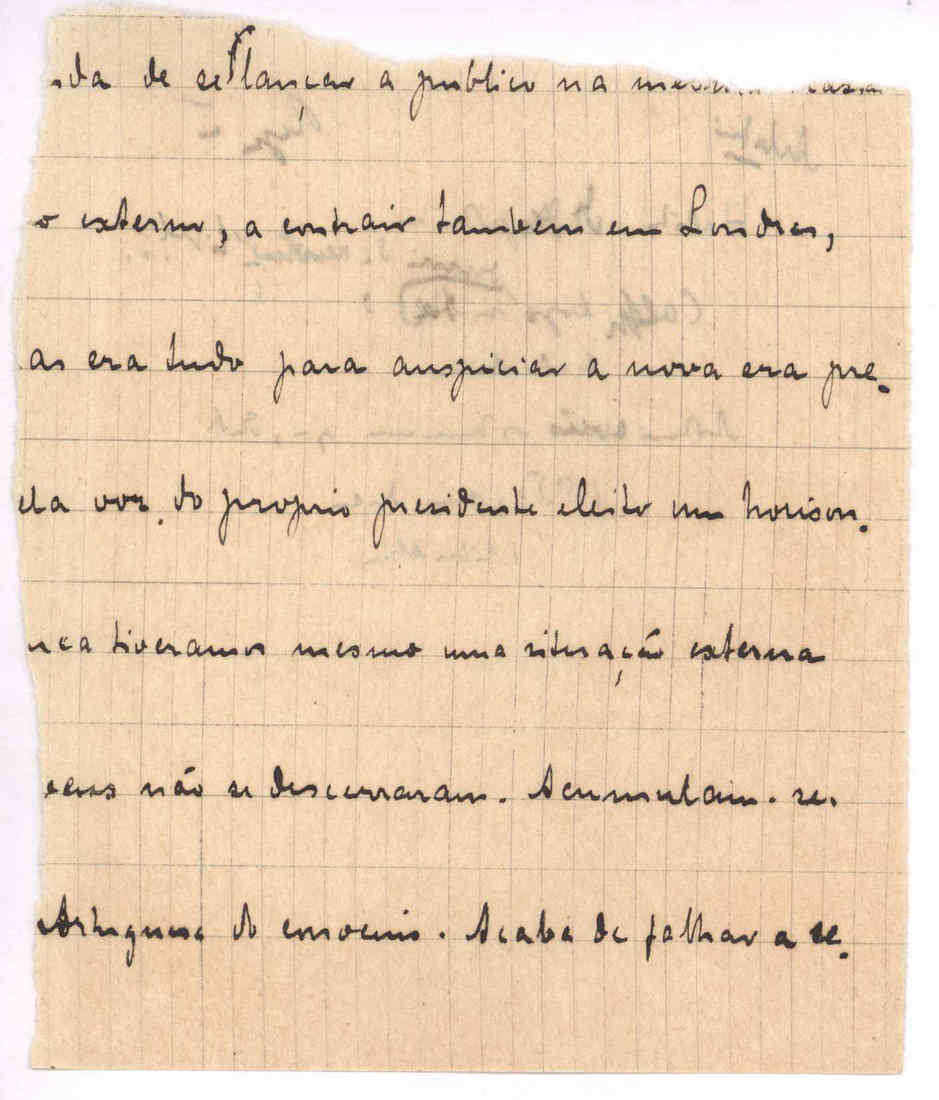 da de se lançar a publico na mesma
o externo, a contrair tambem em Londres,
as era tudo para auspiciar a nova era pre-
ela voz do proprio presidente eleito um horison-
nca tiveramos mesmo uma situação externa
não se descerraram. Acumulam-se
do consorcio. Acaba de falhar a se-